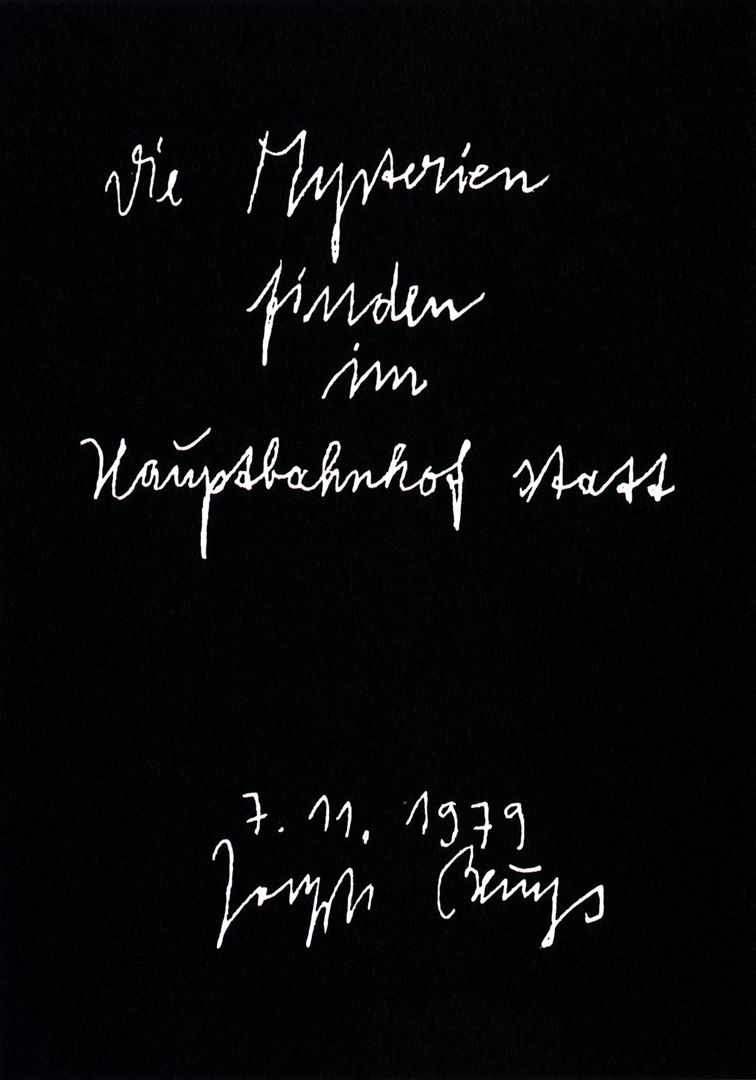 Die Mysterien
finden
im
Hauptbahnhof statt
7. 11. 1979
Joseph Beuys